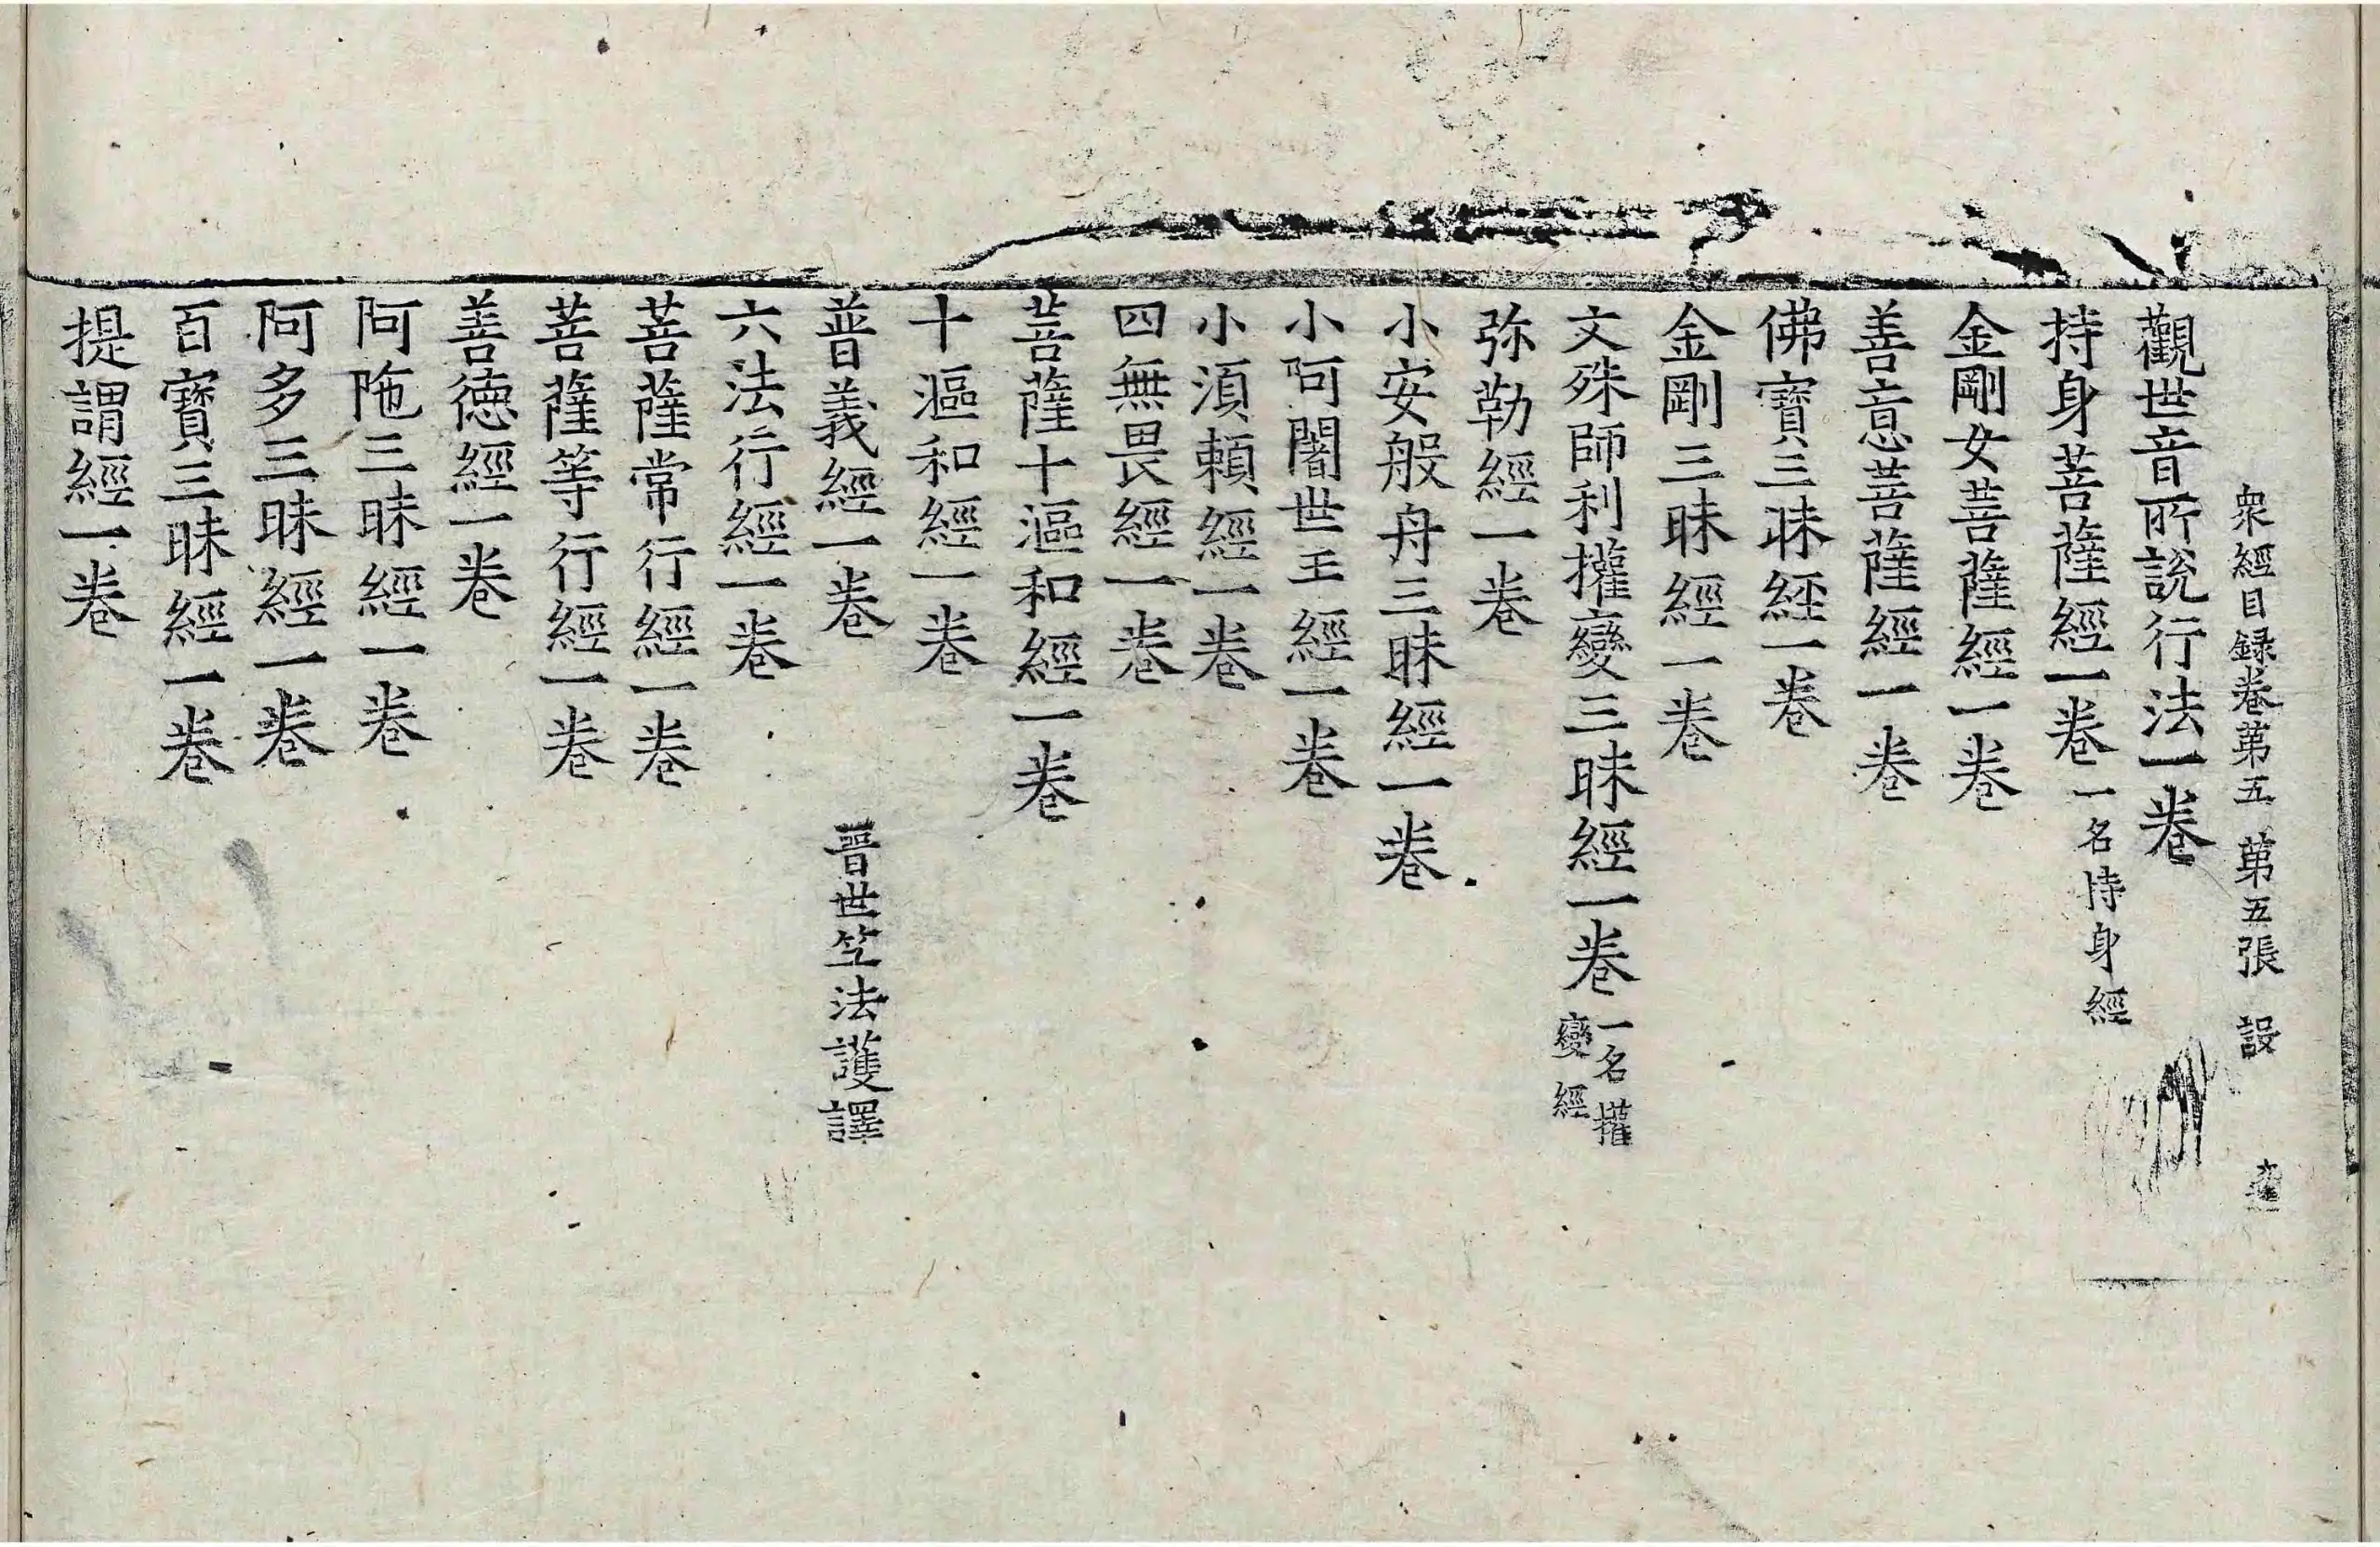 衆經目録卷苐五　苐五張　設
觀世音所說行法一卷
持身菩薩經一卷 一名持身經
金剛女菩薩經一卷
善意菩薩經一卷
佛寶三昧經一卷
金剛三昧經一卷
文殊師利權變三昧經一卷 一名權變經
弥勒經一卷
小安般舟三昧經一卷
小阿闍世王經一卷
小湏賴經一卷
四無畏經一卷
菩薩十漚和經一卷
十漚和經一卷
普義經一卷　晉世竺法護譯
六法行經一卷
菩薩常行經一卷
菩薩等行經一卷
善德經一卷
阿陁三昧經一卷
阿多三昧經一卷
百寶三昧經一卷
提謂經一卷